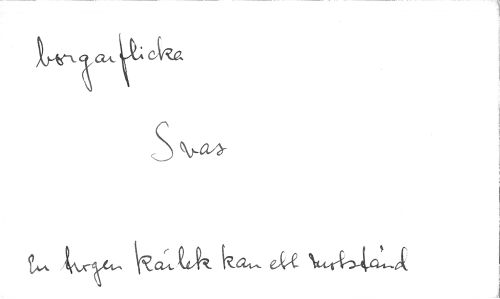 borgarflicka
Svas
En trogen kärlek kan ett motstånd